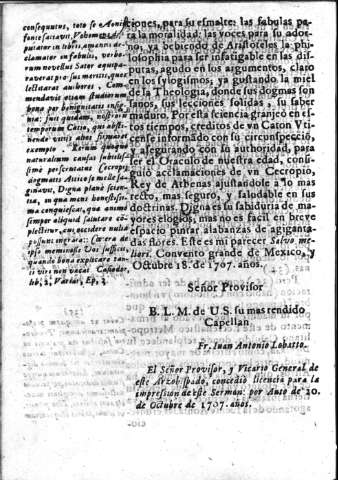 consequutus, toto se Aonio
fonte
in libris, amavit de-
clamator in fabulis, verbo-
rum novellus Sator
meritis, quos
lectitaras autores. Com-
mendavit etiam studiorum
bona per benignitatis
Juit quidam, nostris
temporum Catio,
vitijs abos
exemplo. Rerum quoque
naturalium causas subtilis-
simé perscrutatus Cecropij
dogmatis Attico se melle sa-
ginavit, Digna plané scien-
tia, in qua mens honestissi-
ma conquiescat, que animi
semper aliquid salutare com-
plectitur, cui
possunt ingrata:
memores? Vos
quando bona explicare
ti viri non vacat Casiodor,
lib, 2, Variar, Ep, 3.
ciones, para su esmalte: las fabulas pa-
ra la moralidad: las voces para su ador-
no, ya bebiendo de Aristoteles la phi-
losophia para ser infatigable en las dis-
putas, agudo en los argumentos, claro
en los sylogismos, ya gustando la miel
de la Theologia, donde sus dogmas son
sanos, sus lecciones solidas, su saber
maduro. Por esta sciencia grangeó en es-
tos tiempos, creditos de vn Caton Vti-
cense informado con su circunspecció,
y assegurando con su authoridad, para
ser el Oraculo de nuestra edad, consi-
guió acclamaciones de vn Cecropio,
Rey de Athenas ajustandole a lo mas
recto, mas seguro, y saludable en sus
doctrinas. Digna es su sabiduria de ma-
yores elogios; mas no es facil en breve
espacio pintar alabanzas de agiganta-
das flores. Este es mi parecer Salvo me-
liori. Convento grande de Mexico, y
Octubre 18. de 1707. años.
Señor Provisor
B. L. M. de U.S. su mas rendido
Capellan
Fr. Iuan Antonio Lobatto.
El Señor Provisor, y Vicario General de
este Arzobispado, concedió licencia para la
impression de este Sermon: por Auto de 20.
de Octubre de 1707. años.